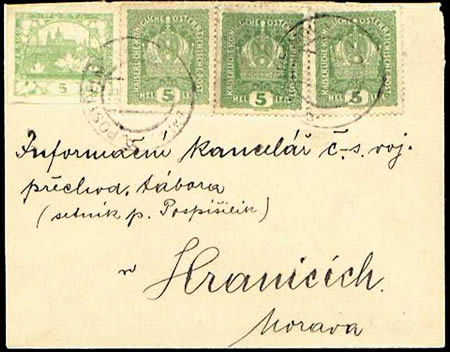 5
KAISERLICHE KÖNIGLICHE ÖSTERREICHISCHE POST
HELLER 5
KAISERLICHE KÖNIGLICHE ÖSTERREICHISCHE POST
HELLER 5
KAISERLICHE KÖNIGLICHE ÖSTERREICHISCHE POST
HELLER 5
Informační kancelář č-s. voj.
přechod. tábora
(setník p. Pospíšilík)
v
Hranicích.
Morava